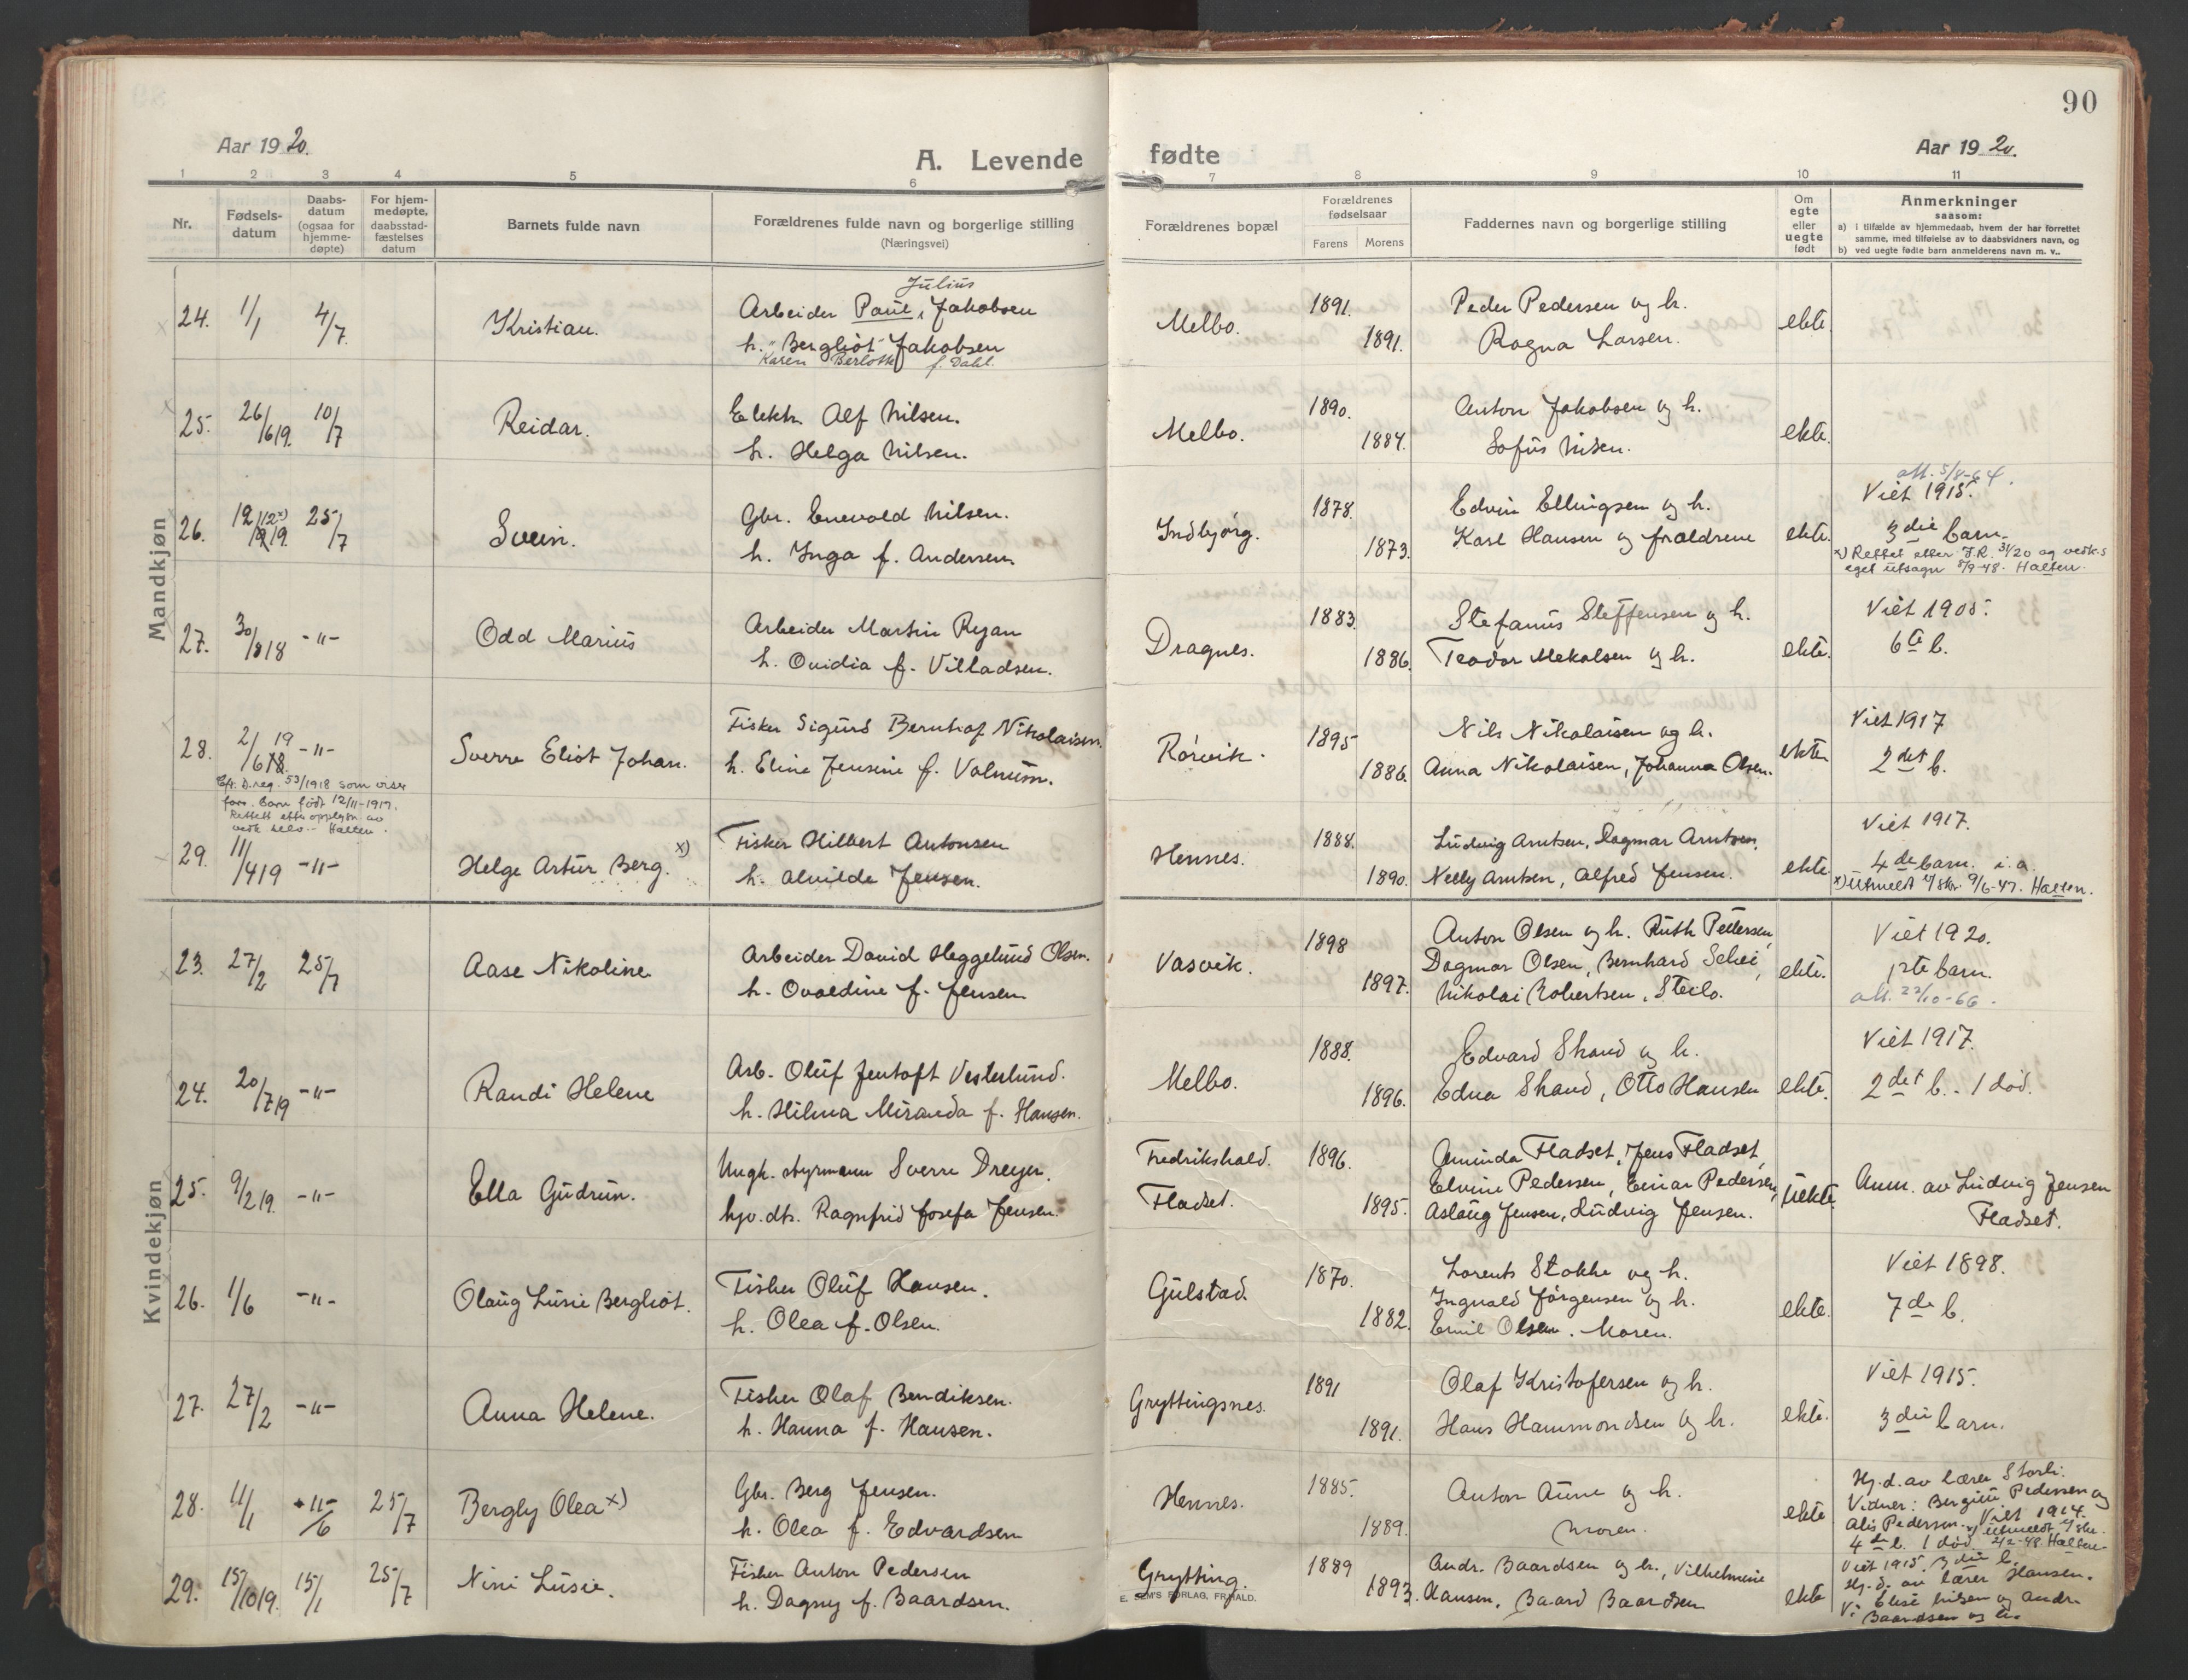 90
Aar 1920.
A. Levende fødte
Aar 1920.
1 2 3 4 5 6 7 8 9 10 11
Nr.
Fødsels-
datum
Daabs-
datum
(ogsaa for
hjemme-
døpte)
For hjem-
medøpte,
daabsstad-
fæstelses
datum
Barnets fulde navn
Forældrenes fulde navn og borgerlige stilling
(Næringsvei)
Forældrenes bopæl
Forældrenes
fødselsaar
Farens Morens
Faddernes navn og borgerlige stilling
Om
egte
eller
uegte
født
Anmerkninger
saasom:
a) i tilfælde av hjemmedaab, hvem der har forrettet
samme, med tilføielse av to daabsvidners navn, og
b) ved uegte fødte barn anmelderens navn m. v..
Mandkjøn
Julius
24. 1/1 4/7. Kristian. Arbeider Paul, Jakobsen Melbo. 1891. Peder Pedersen og h. ekte.
h. Bergliot Jakobsen 1891. Ragna Larsen.
Karen Berlotte f. Dahl.
25. 26/619. 10/7 Reidar. Elektr. Alf Nilsen. Melbo. 1890. Anton Jakobsen og h. ekte.
h. Helga Nilsen. 1884. Sofus Nilsen.
att. 5/8-64.
26. 12/12x) 19. 25/7 Svein. Gbr. Enevold Nilsen. Indbjørg. 1878. Edvin Ellingsen og h. ekte. Viet 1915.
h. Inga f. Andersen 1873. Karl Hansen og forældrene 3die barn.
x) Rettet etter F.R. 31/20 og vedk.s
eget utsagn 8/9-48. Halten.
27. 30/818 -"- Odd Marius Arbeider Martin Ryan Dragnes. 1883. Stefanus Steffensen og h. ekte. Viet 1905.
h. Ovidia f. Villadsen. 1886. Teodor Mekalsen og h. 6te b.
28. 2/6 19 18. -"- Sverre Eliot Johan. Fisker Sigurd Bernhof Nikolaisen. Rørvik. 1895 Nils Nikolaisen og h. ekte Viet 1917
h. Eline Jensine f. Valnum. 1886. Anna Nikolaisen, Johanna Olsen. 2det b.
Eft. D.reg. 53/1918 som viser
barn født 12/11-1917.
Rettet etter opplysn. av
vedk. selv - Halten.
29. 11/419 -"- Helge Artur Berg. x) Fisker Hilbert Antonsen Hennes. 1888. Ludvig Arntsen, Dagmar Arntsen, ekte. Viet 1917.
h. Alvilde Jensen. 1890. Nelly Arntsen, Alfred Jensen. 4de barn. i.a.
x) Utmeldt 9/6-47. Halten.
Kvindekjøn
23. 27/2 25/7 Aase Nikoline Arbeider David Heggelund Olsen. Vasvik. 1898 Anton Olsen og h. Ruth Pettersen, ekte. Viet 1920.
h. Ovaldine f. Jensen 1897. Dagmar Olsen, Bernhard Schei, 1ste barn.
Nikolai Robertsen, Steilo. att. 22/10-66.
24. 20/719 -"- Randi Helene Arb. Oluf Jentoft Vesterlund. Melbo. 1888. Edvard Strand og h. ekte. Viet 1917.
h. Hilma Miranda f. Hansen. 1896. Edna Strand, Otto Hansen 2det b. - 1 død.
25. 9/219. -"- Ella Gudrun. Ungk. styrmann Sverre Dreyer. Fredrikshald. 1896. Aminda Fladset, Jens Fladset, uekte. Anm. av Ludvig Jensen
hjv. dtr. Ragnfrid Josefa Jensen. Fladset. 1895. Elvine Pedersen, Einar Pedersen, Fladset.
Aslaug Jensen, Ludvig Jensen.
26. 1/6 -"- Olaug Lusie Bergliot. Fisker Oluf Hansen. Gulstad. 1870. Lorents Stokke og h. ekte. Viet 1898.
h. Olea f. Olsen. 1882. Ingvald Jørgensen og h. 7de b.
Emil Olsen. Moren.
27. 27/2 -"- Anna Helene. Fisker Olaf Bendiksen. Gryttingsnes. 1891 Olaf Kristofersen og h. ekte. Viet 1915.
h. Hanna f. Hansen. 1891. Hans Hammondsen og h. 3die barn.
28. 11/1 -11-/6 25/7 Bergly Olea x) Gbr. Berg Jensen. Hennes. 1885. Anton Aune og h. ekte
h. Olea f. Edvardsen 1889. Moren.
Hj.d. av lærer Storli.
Vidner: Bergitte Pedersen og
Alis Pedersen. Viet 1914.
4de b. 1 død. x) Utmeldt 4/2-48. Halten.
29. 15/1019. 15/1 25/7 Nini Lusie. Fisker Anton Pedersen Grytting. 1889 Andr. Baardsen og h., Vilhelmine ekte
h. Dagny f. Baardsen. 1893. Hansen, Baard Baardsen
Viet 1915. 3die b.
Hj.d. av lærer Hansen.
V: Elise Nilsen og Andr.
Baardsen og h.
E. SEM'S FORLAG, FR.HALD.